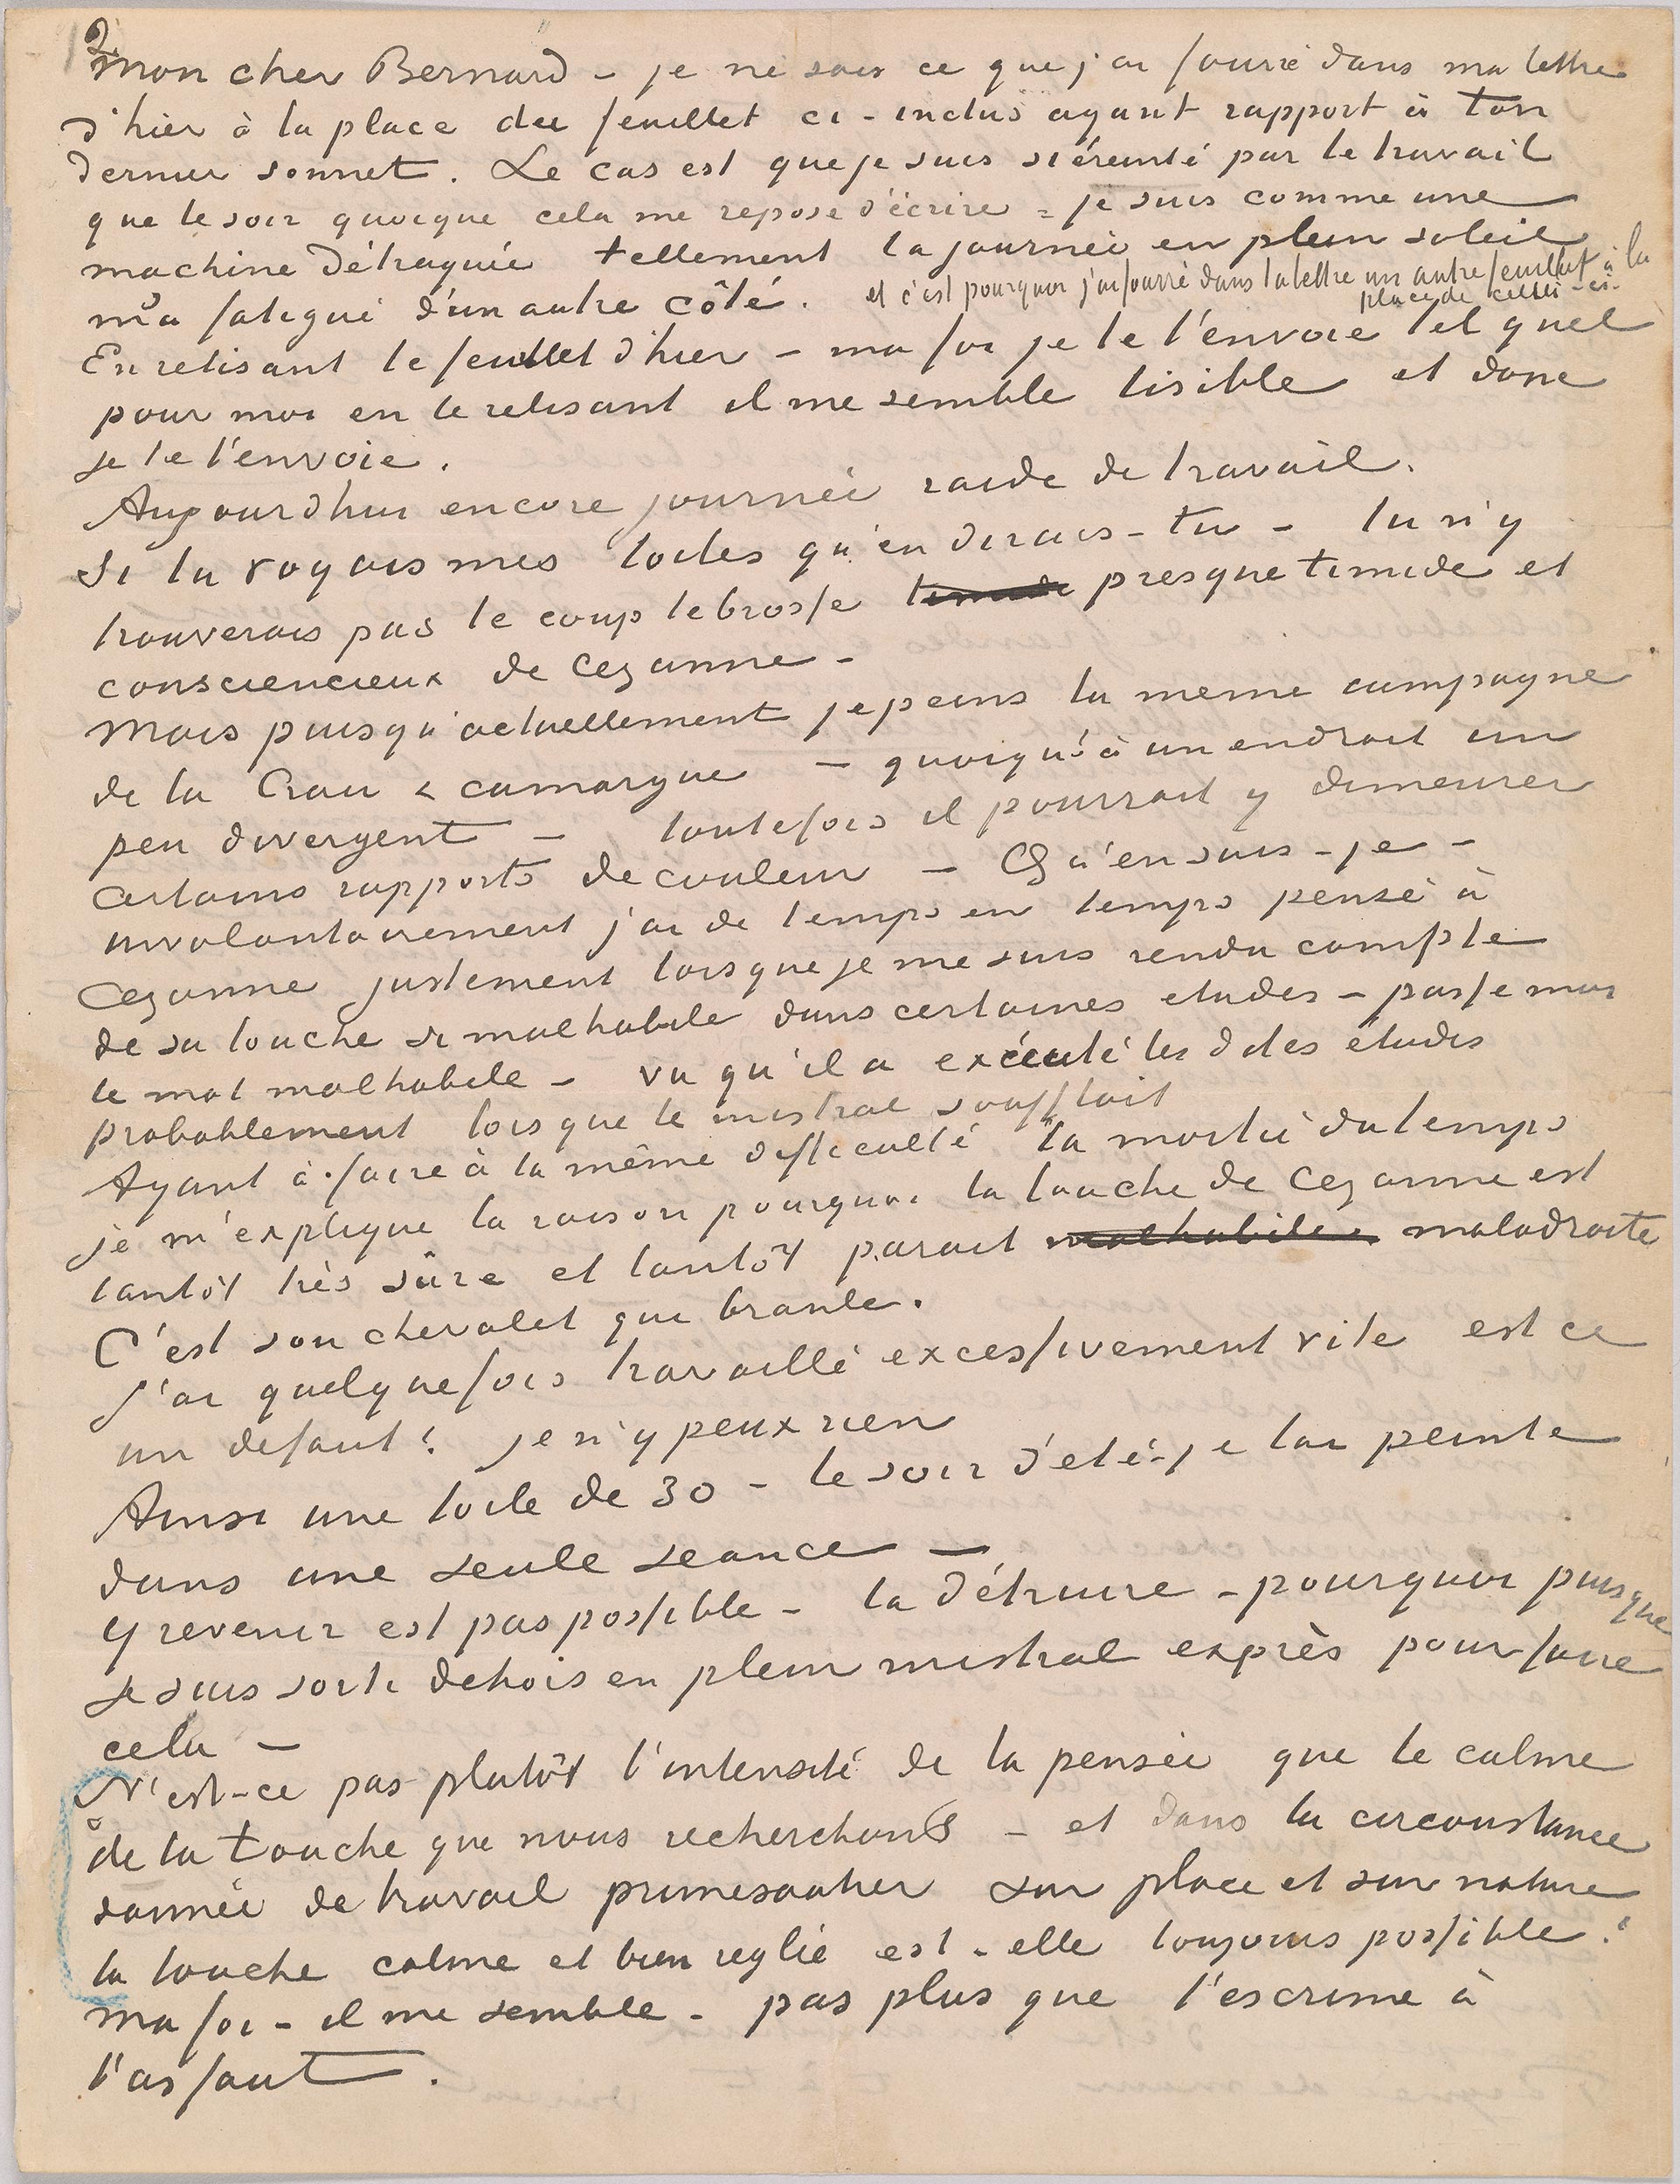 2
mon cher Bernard – je ne sais ce que j'ai fourré dans ma lettre
d'hier à la place du feuillet ci-inclus ayant rapport à ton
dernier sonnet. Le cas est que je suis si éreinté par le travail
que le soir quoique cela me repose d'écrire – je suis comme une
machine détraquée tellement la journée en plein soleil
m'a fatigué d'un autre côté. et c'est pourquoi j'ai fourré dans la lettre un autre feuillet à la
place de celui-ci.
En relisant le feuillet d'hier – ma foi je te l'envoie tel quel
pour moi en le relisant il me semble lisible et donc
je te l'envoie.
Aujourd'hui encore journée raide de travail.
Si tu voyais mes toiles qu'en dirais-tu – tu n'y
trouverais pas le coup de brosse timide presque timide et
consciencieux de Cezanne –
Mais puisqu'actuellement je peins la meme campagne
de la Crau & camargue – quoiqu'à un endroit un
peu divergent – toutefois il pourrait y demeurer
certains rapports de couleur – Qu'en sais-je –
involontairement j'ai de temps en temps pensé à
Cezanne justement lorsque je me suis rendu compte
de sa touche si malhabile dans certaines etudes – passe moi
le mot malhabile – vu qu'il a exécuté les dites études
probablement lorsque le mistral soufflait
Ayant à faire à la même difficulté la moitié du temps
je m'explique la raison pourquoi la touche de Cezanne est
tantôt très sûre et tantôt parait malhabile maladroite
C'est son chevalet qui branle.
J'ai quelquefois travaillé excessivement vite est ce
un defaut? je n'y peux rien
Ainsi une toile de 30 – le soir d'eté – je l'ai peinte
dans une seule seance –
Y revenir est pas possible – la détruire – pourquoi puisque
je suis sorti dehors en plein mistral exprès pour faire
cela –
N'est-ce pas plutôt l'intensité de la pensée que le calme
de la touche que nous recherchons – et dans la circonstance
donnée de travail primesautier sur place et sur nature
la touche calme et bien reglée est-elle toujours possible?
Ma foi – il me semble – pas plus que l'escrime à
l'assaut.